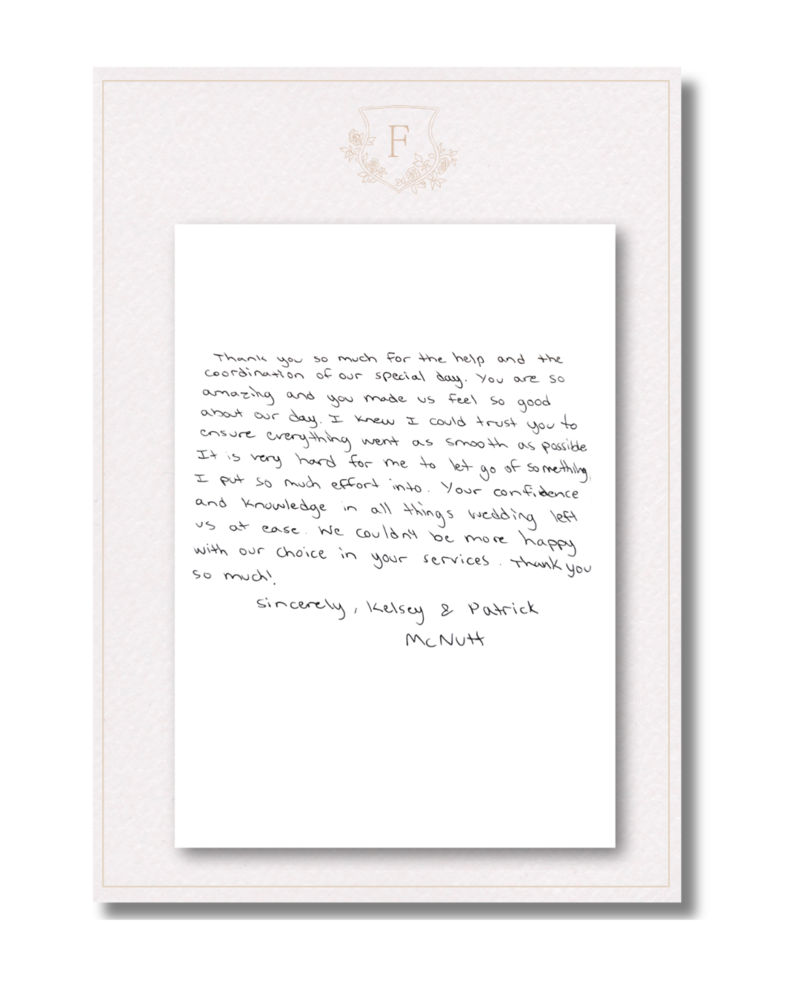 F
Thank you so much for the help and the
coordination of our special day. You are so
amazing and you made us feel so good
about our day. I knew I could trust you to
ensure everything went as smooth as possible
It is very hard for me to let go of something
I put so much effort into. Your confidence
and knowledge in all things wedding left
us at ease. We couldn't be more happy
with our choice in your services. Thank you
so much!
Sincerely, Kelsey & Patrick
McNutt